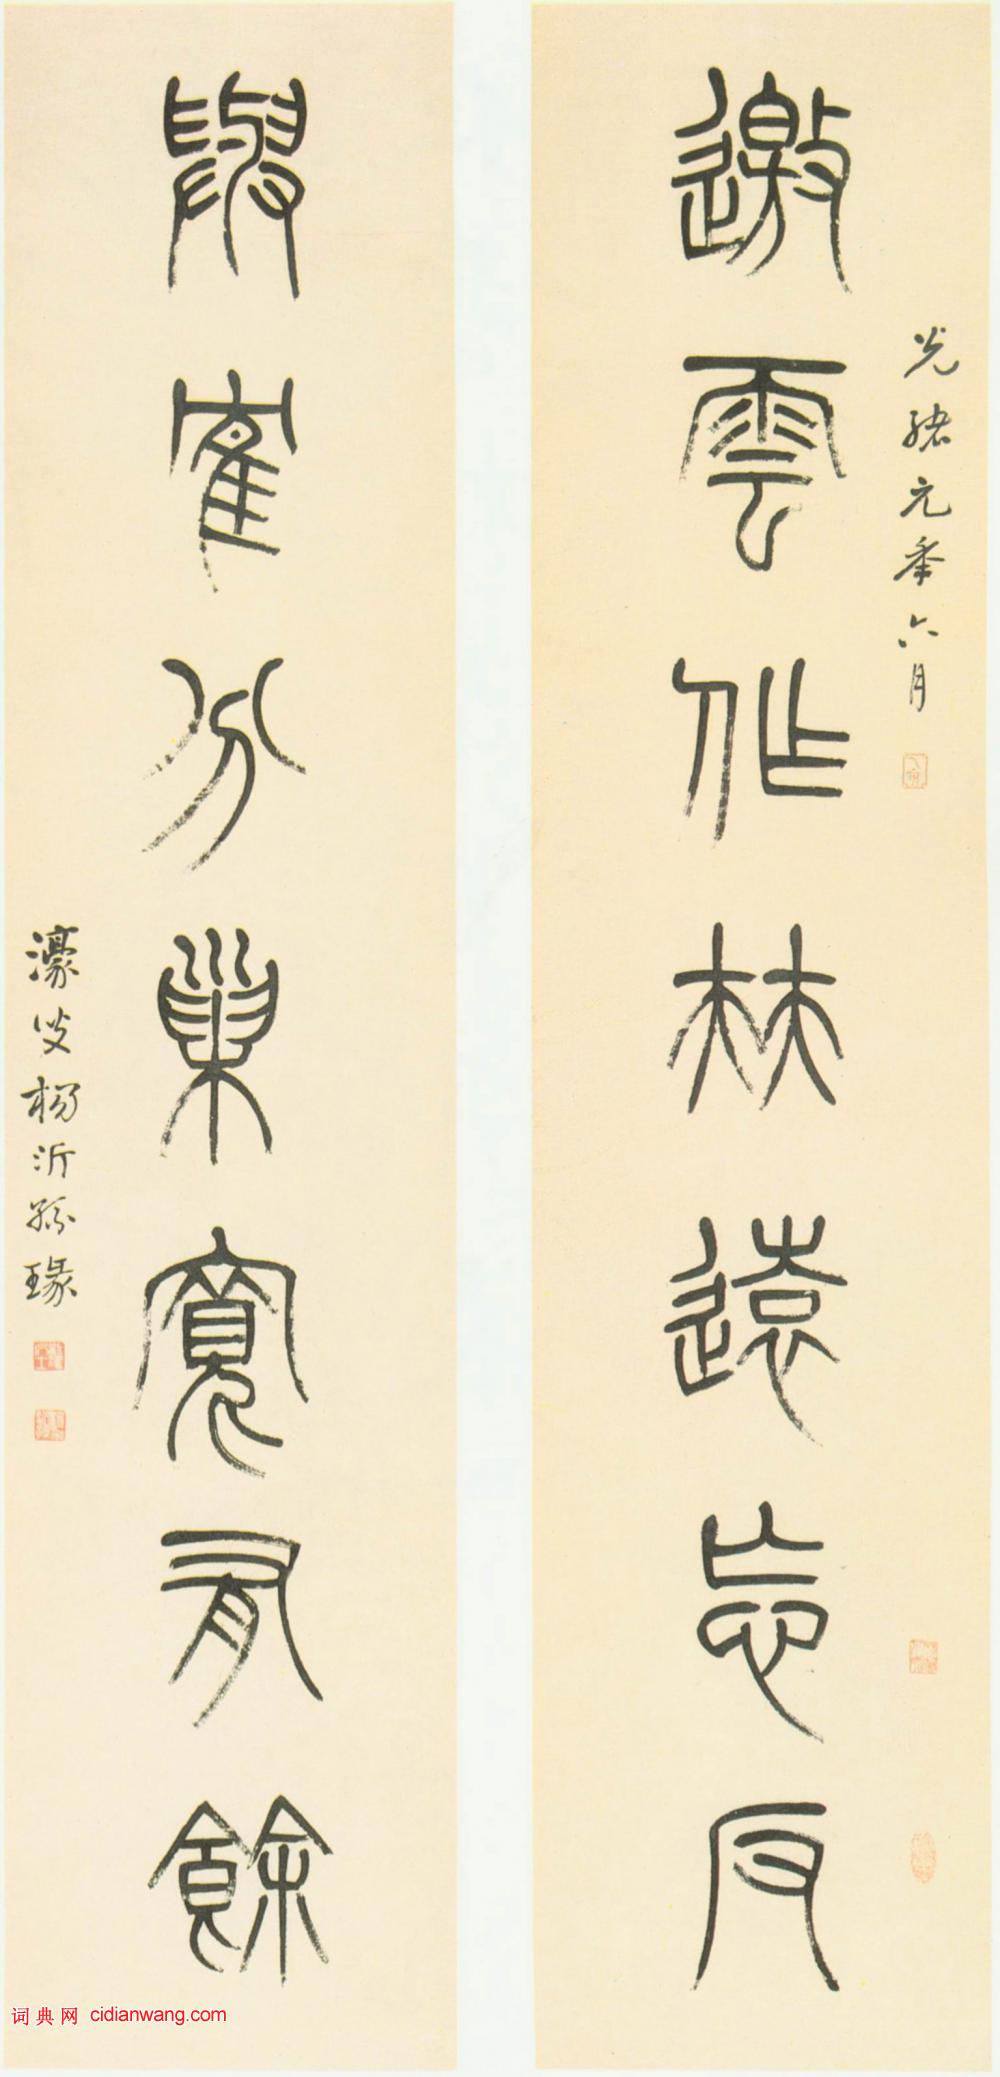 光緒元年六月
邀雲作林遠忘反
與隺分巢寬有餘
濠叟楊沂孫瑑
词典网 cidianwang.com